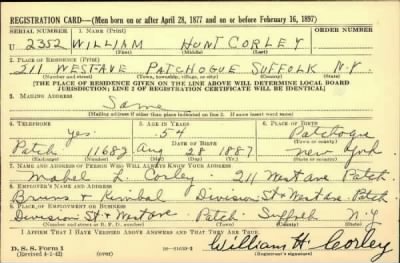 REGISTRATION CARD—(Men born on or after April 28, 1877 and on or before February 16, 1897)
SERIAL NUMBER 1. NAME (Print) ORDER NUMBER
U 2352 WILLIAM HUNT CORLEY
(First) (Middle) (Last)
2. PLACE OF RESIDENCE (Print)
211 WEST AVE PATCHOGUE SUFFOLK N.Y.
(Number and street) (Town, township, village, or city) (County) (State)
[THE PLACE OF RESIDENCE GIVEN ON THE LINE ABOVE WILL DETERMINE LOCAL BOARD
JURISDICTION; LINE 2 OF REGISTRATION CERTIFICATE WILL BE IDENTICAL]
3. MAILING ADDRESS
Same
(Mailing address if other than place indicated on line 2. If same insert word same)
4. TELEPHONE 5. AGE IN YEARS 6. PLACE OF BIRTH
yes 54 Patchogue
DATE OF BIRTH (Town or county)
Patch 11682 Aug 28 1887 New York
(Exchange) (Number) (Mo.) (Day) (Yr.) (State or country)
7. NAME AND ADDRESS OF PERSON WHO WILL ALWAYS KNOW YOUR ADDRESS
Mabel L. Corley 211 West ave Patch
8. EMPLOYER'S NAME AND ADDRESS
Bruns & Kimbal Division St & West ave Patch
9. PLACE OF EMPLOYMENT OR BUSINESS
Division St & West ave Patch Suffolk N.Y
(Number and street or R. F. D. number) (Town) (County) (State)
I AFFIRM THAT I HAVE VERIFIED ABOVE ANSWERS AND THAT THEY ARE TRUE.
D. S. S. Form 1
(Revised 4-1-42) (over)
William H. Corley
(Registrant's signature)